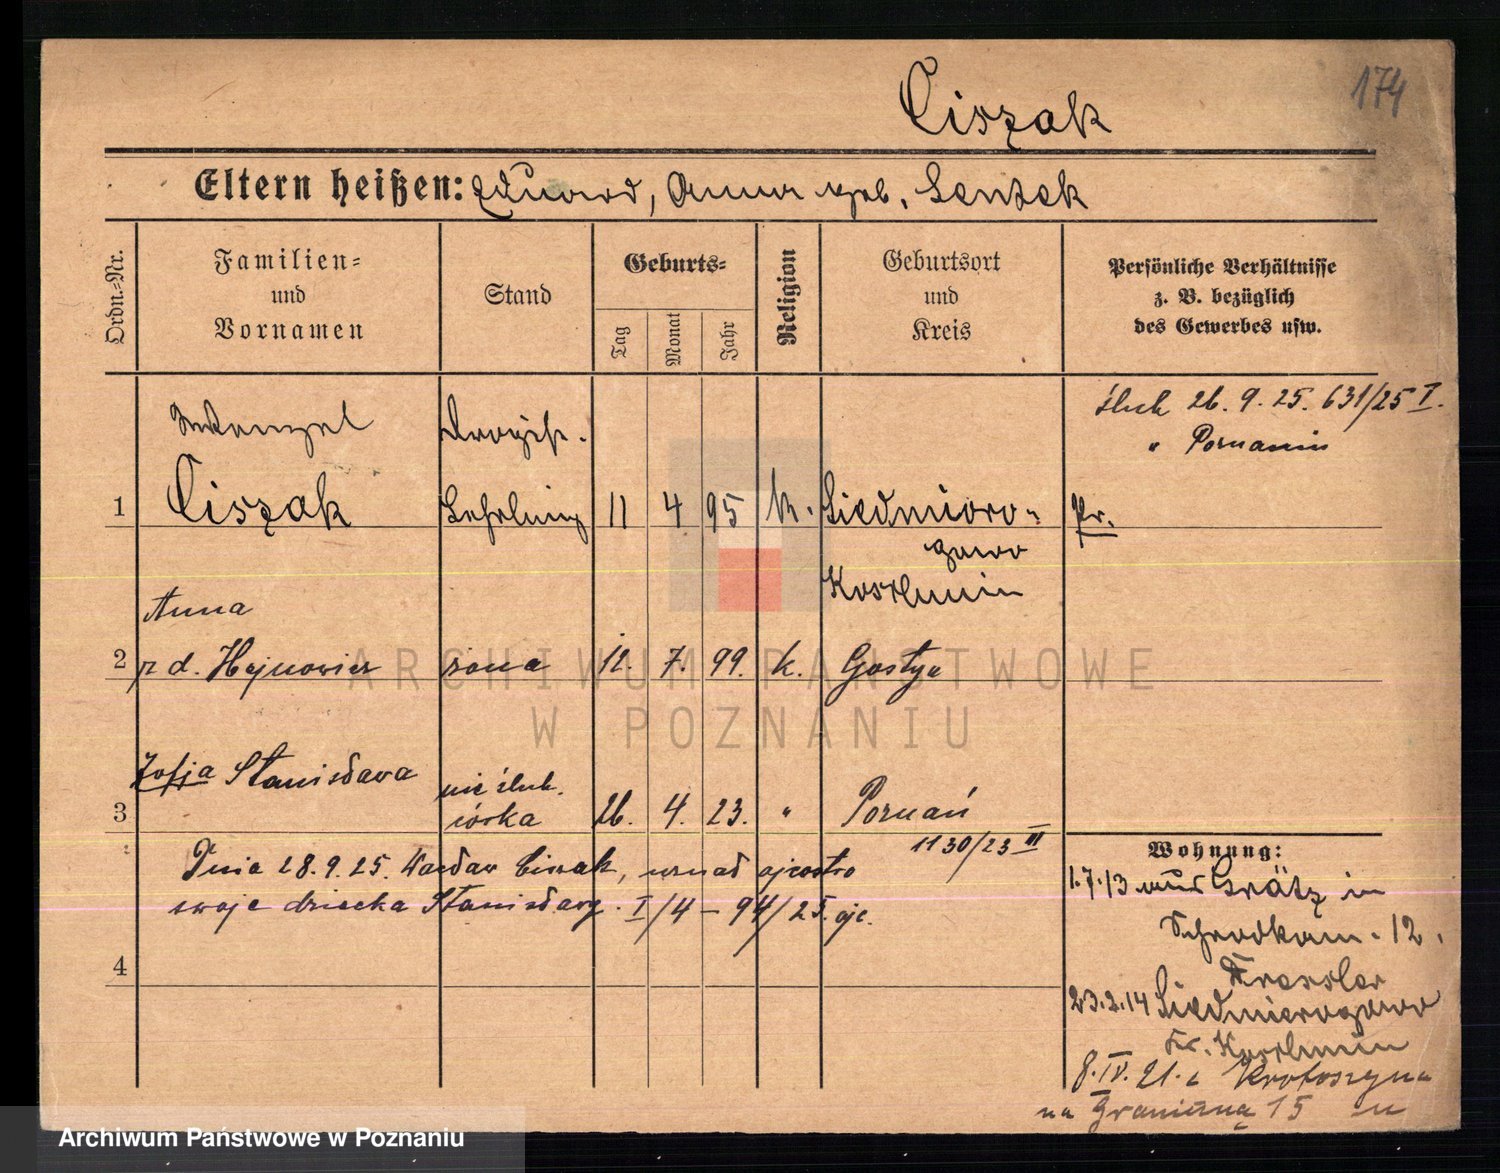 174
Ciszak
Eltern heißen: Eduard, Anna geb. Lentek
Ordn.-Nr.
Familien-
und
Vornamen
Stand
Geburts-
Tag
Monat
Jahr
Religion
Geburtsort
und
Kreis
Persönliche Verhältnisse
z. B. bezüglich
des Gewerbes usw.
ślub 26. 9. 25. 631/25 I.
w Poznaniu
Wenzel
Drogist.
1 Ciszak Lehrling 11 4 95 k. Siedmioro-
gowo
Koschmin
Pr.
Anna
2 z d. Hajnowicz żona 12. 7. 99. k. Gostyń
Zofja Stanisława
nie ślub.
3 córka 26. 4. 23. " Poznań
1130/23 III
Dnia 28.9.25. Wacław Ciszak, uznał ojcostwo
swoje dziecka Stanisławy. I/4 – 94/25. ojc.
4
Wohnung:
1.7.13 aus Grätz in
Schrodkam. 12.
Kressler
23.2.14 Siedmiorogowo
Kr. Koschmin
8. IV. 21. z Krotoszyna
na Graniczną 15
ARCHIWUM PAŃSTWOWE
W POZNANIU
Archiwum Państwowe w Poznaniu